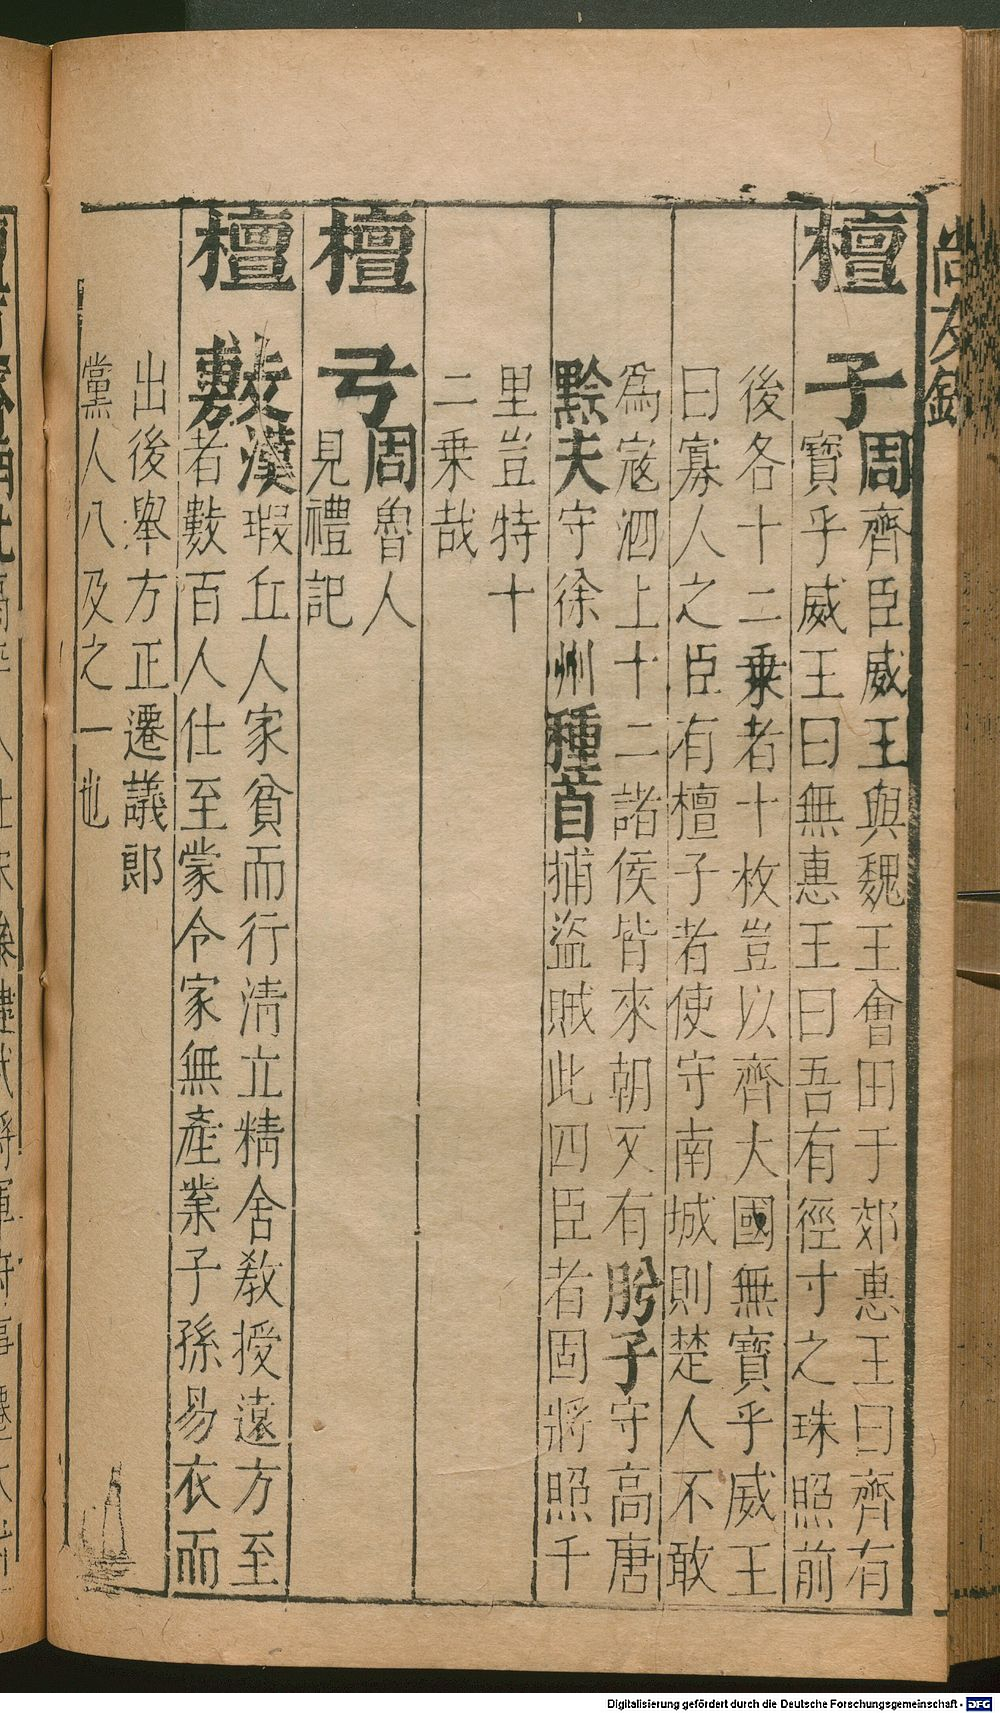 尚友錄
檀子周齊臣威王與魏王會田于郊惠王曰齊有
寶乎威王曰無惠王曰吾有徑寸之珠照前
後各十二乗者十枚豈以齊大國無寶乎威王
曰寡人之臣有檀子者使守南城則楚人不敢
為宼泗上十二諸侯皆來朝又有肦子守高唐
黔夫守徐州種首捕盜賊此四臣者固將照千
里豈特十
二乗哉
檀弓周魯人
見禮記
檀敷漢瑕丘人家貧而行清立精舍教授遠方至
者數百人仕至蒙令家無產業子孫易衣而
出後舉方正遷議郎
黨人八及之一也
Digitalisierung gefördert durch die Deutsche Forschungsgemeinschaft - DFG